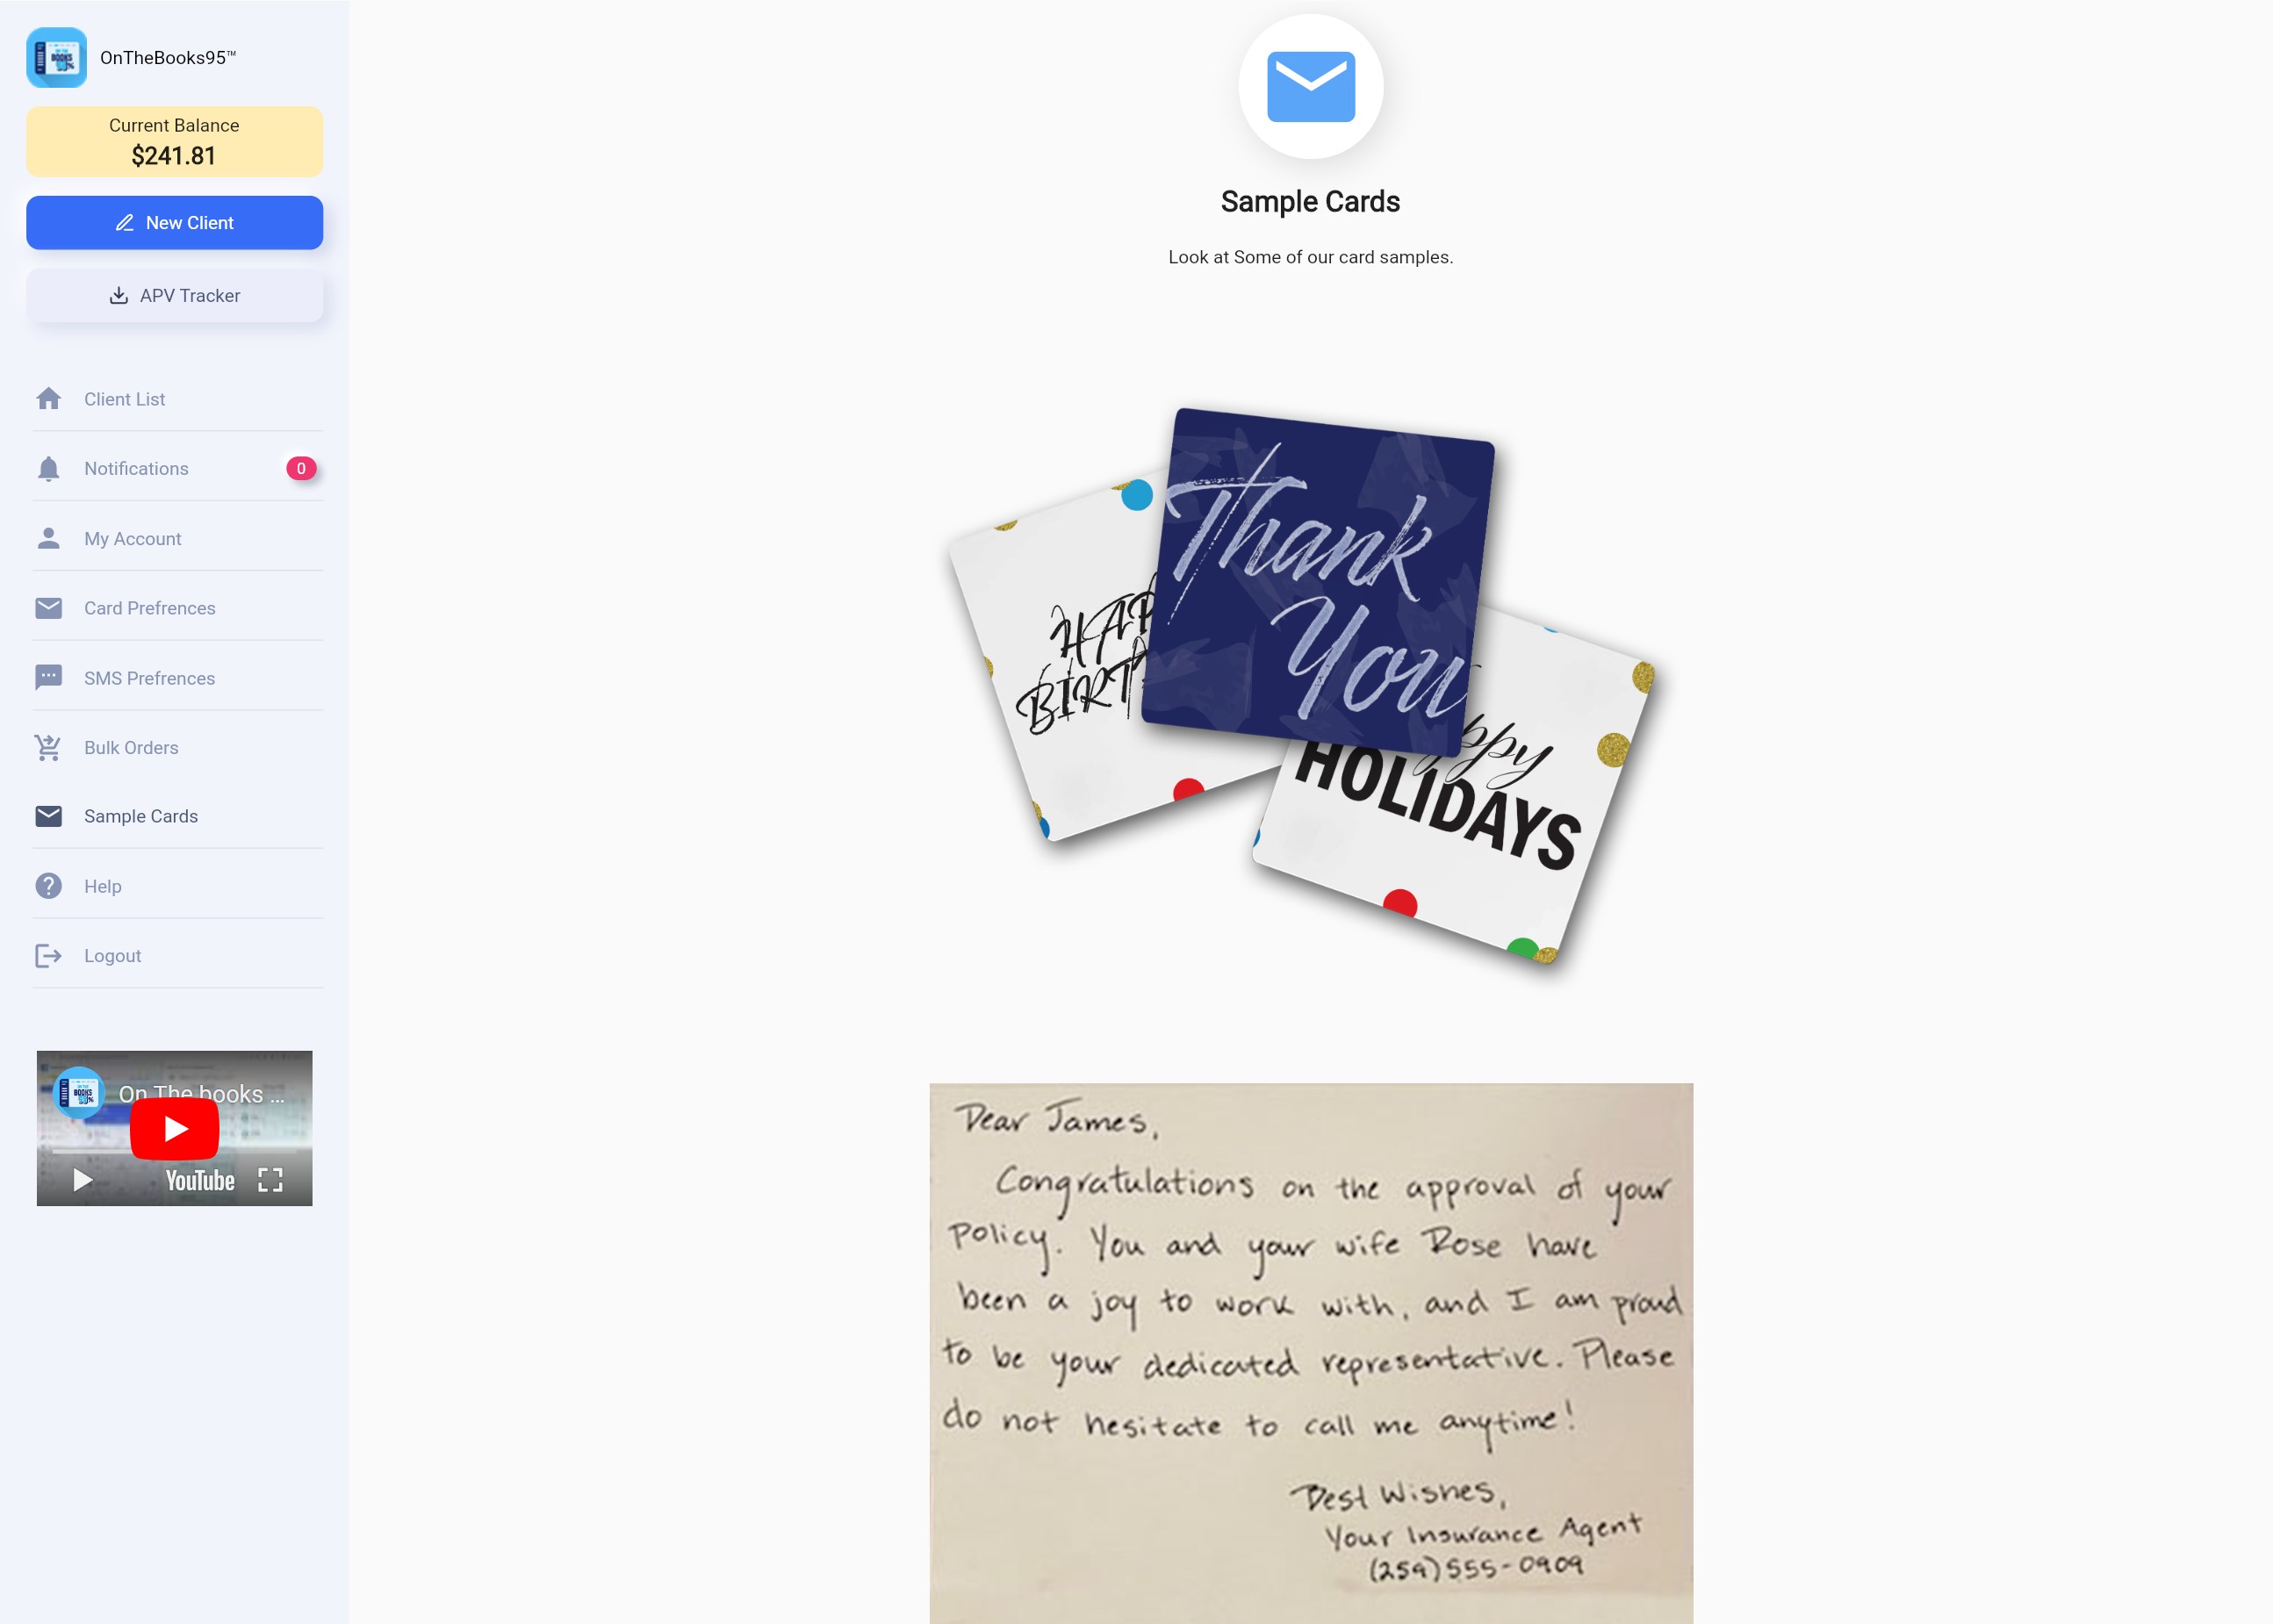 OnTheBooks95™
Current Balance
$241.81
New Client
APV Tracker
Client List
Notifications 0
My Account
Card Prefrences
SMS Prefrences
Bulk Orders
Sample Cards
Help
Logout
On The books ...
YouTube
Sample Cards
Look at Some of our card samples.
HAP
BIRT
Thank
You
ppy
HOLIDAYS
Dear James,
Congratulations on the approval of your
policy. You and your wife Rose have
been a joy to work with, and I am proud
to be your dedicated representative. Please
do not hesitate to call me anytime!
Best Wishes,
Your Insurance Agent
(259) 555-0909